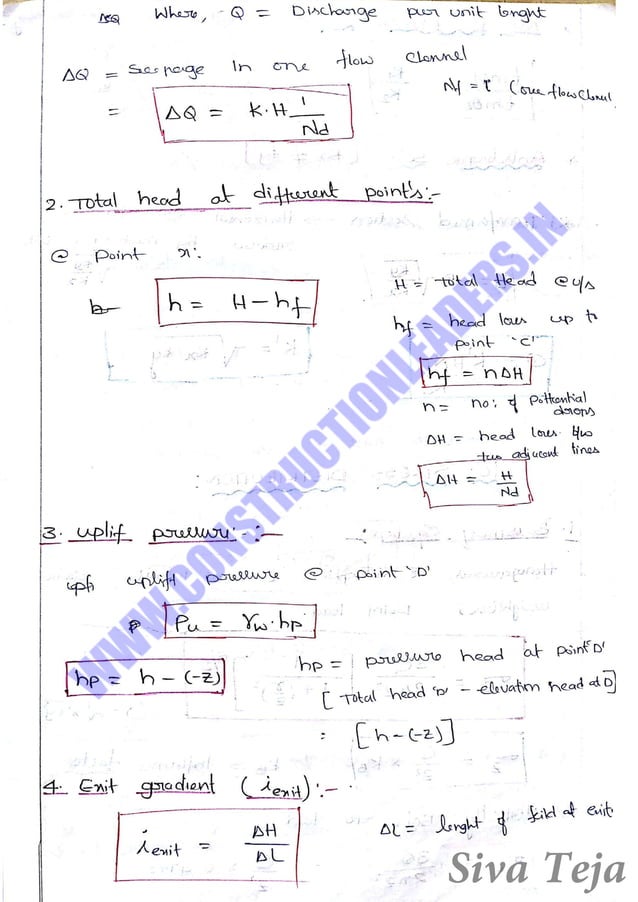 Where, Q = Discharge pur unit lenght
ΔQ = Seepage In one flow Channel
Nf = 1 (one flow Channel
= ΔQ = K.H 1/Nd
2. Total head at different point's:-
@ Point x:
h = H - hf
H = Total Head @ u/s
hf = head loss up to
point 'C'
hf = nΔH
n = no: of Pottential
drops
ΔH = head loss b/w
two adjucent lines
ΔH = H/Nd
3. uplif pressure:-:-
uplift pressure @ point 'D'
Pu = γw.hp
hp = h - (-z)
hp = pressure head at point 'D'
[Total head 'D' - elevation head at D]
= [h-(-z)]
4. Exit gradient (i exit):-
i exit = ΔH/ΔL
ΔL = lenght of field at exit
WWW.CONSTRUCTIONLEADERS.IN
Siva Teja